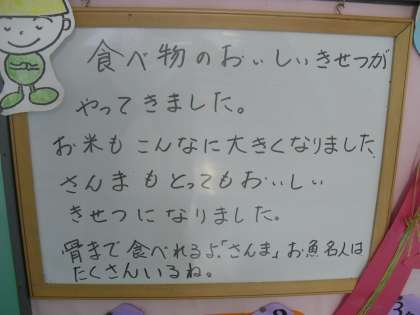 食べ物のおいしいきせつが
やってきました。
お米もこんなに大きくなりました、
さんまもとってもおいしい
きせつになりました。
骨まで食べれるよ、「さんま」お魚名人は
たくさんいるね。